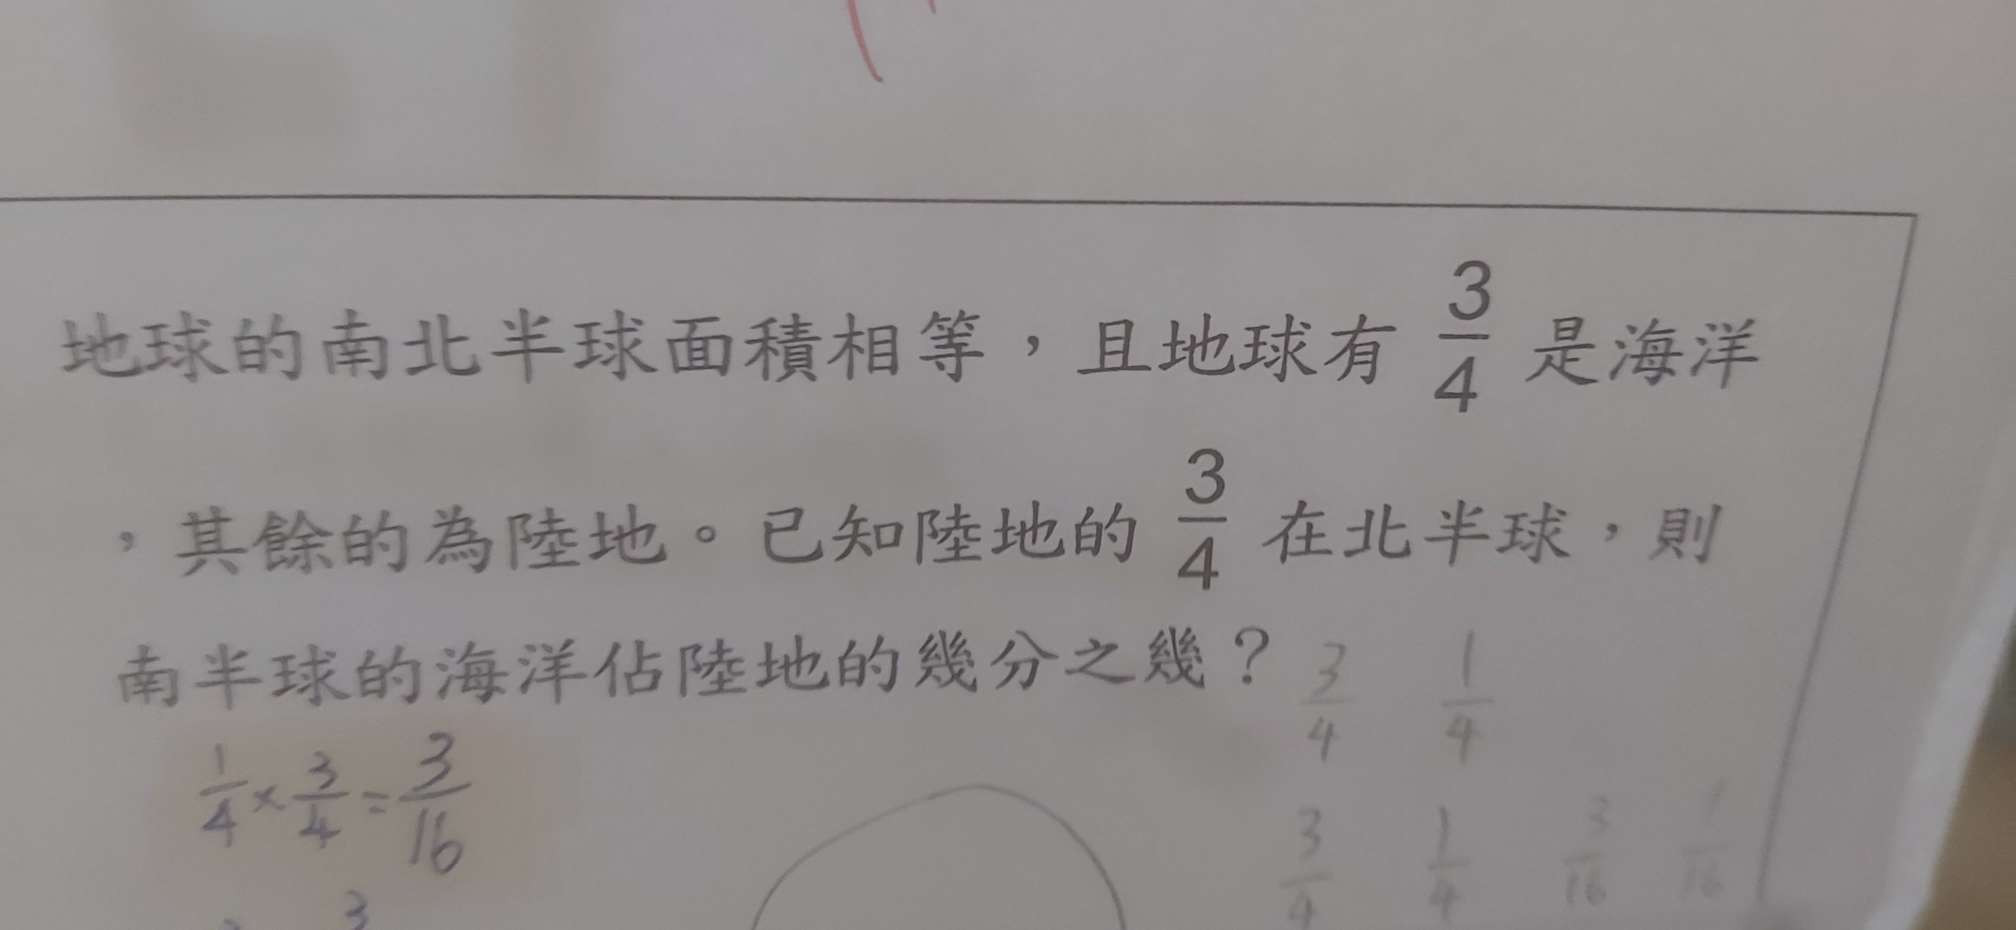 地球的南北半球面積相等，且地球有 3/4 是海洋
，其餘的為陸地。已知陸地的 3/4 在北半球，則
南半球的海洋佔陸地的幾分之幾？ 3/4 1/4
1/4 × 3/4 = 3/16
3/4 1/4 3/16 1/16
3